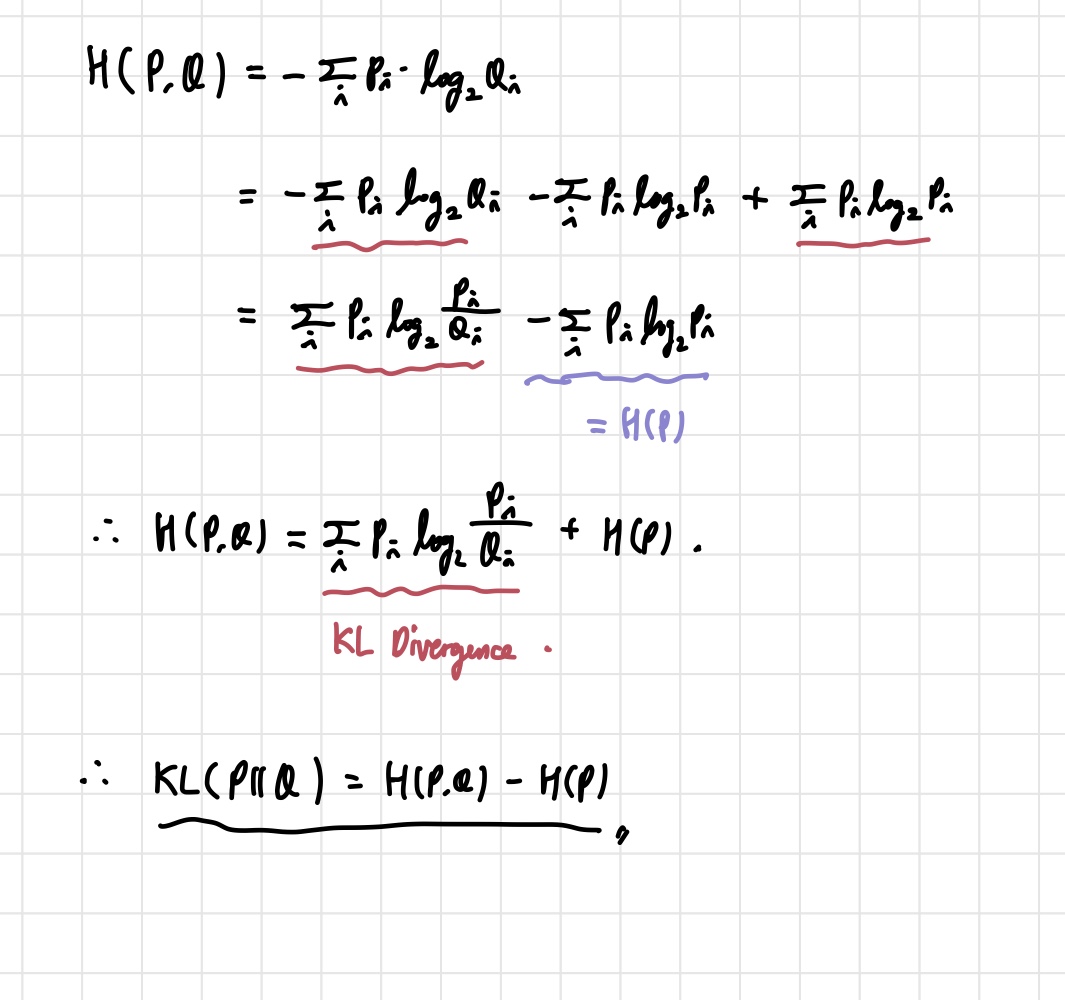 H(P,Q) = -Σ_i P_i · log_2 Q_i
= -Σ_i P_i log_2 Q_i - Σ_i P_i log_2 P_i + Σ_i P_i log_2 P_i
= Σ_i P_i log_2 P_i/Q_i - Σ_i P_i log_2 P_i
= H(P)
∴ H(P,Q) = Σ_i P_i log_2 P_i/Q_i + H(P).
KL Divergence.
∴ KL(P||Q) = H(P,Q) - H(P)